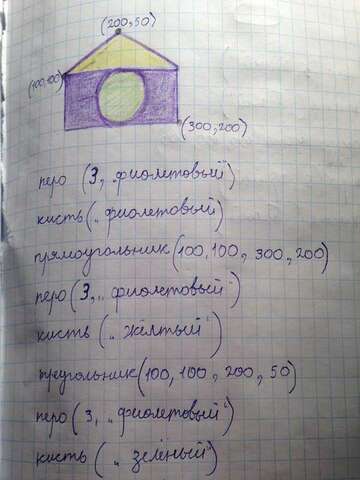 (200,50)
(100,100)
(300,200)
перо (3, „фиолетовый")
кисть („фиолетовый")
прямоугольник (100,100, 300, 200)
перо (3, „фиолетовый")
кисть („жёлтый")
треугольник (100, 100, 200, 50)
перо (3, „фиолетовый")
кисть („зелёный")